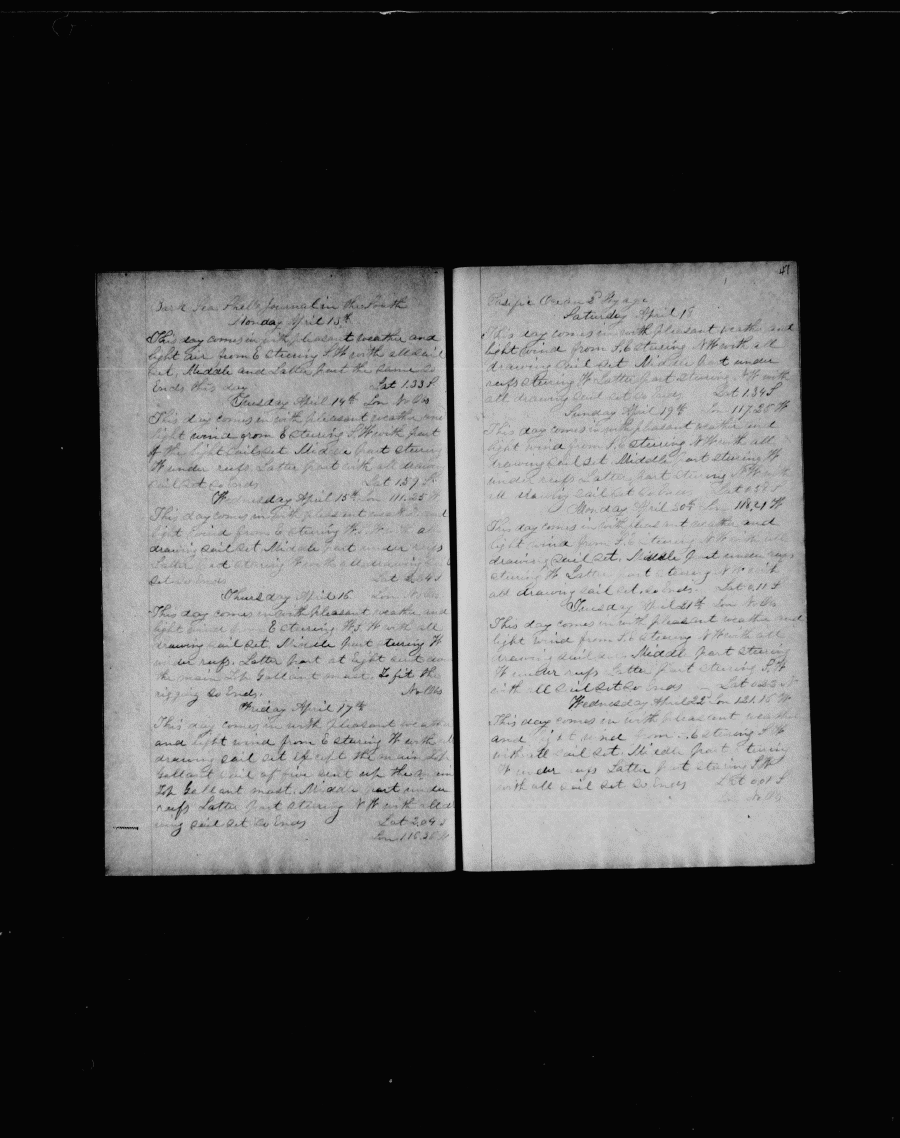 Bark Sea Shell Journal in the South
Monday April 13th
This day comes in with pleasant weather and
light air from E steering S.W with all sail
set, Middle and Latter part the same So
Ends this day Lat 1.33 S
Tuesday April 14th Lon No Obs
This day comes in with pleasant weather and
light wind from E steering S.W with part
of the light sail set Middle part steering
W under reefs Latter part with all drawing
sail set So Ends Lat 1.59 S
Wednesday April 15th Lon 111.25 W
This day comes in with pleasant weather and
light wind from E steering W
drawing sail set Middle part under reefs
Latter part steering W with all drawing
set So Ends Lat
Thursday April 16 Lon No Obs
This day comes in with pleasant weather and
light wind E steering W S W with all
drawing sail set. Middle part steering W
under reefs. Latter part at light sent down
the main Top Gallant mast. To fit the
rigging So Ends. No Obs
Friday April 17th
This day comes in with pleasant weather
and light wind from E steering W with all
drawing sail set except the main Top
Gallant sail at five sent up the main
Top Gallant mast. Middle part under
reefs Latter part steering N W with all dr
wing sail set So Ends Lat 2.09 S
Lon 116.30 W
47
Pacific Ocean 2d Voyage
Saturday April 18
This day comes in with pleasant weather and
light wind from S.E steering N W with all
drawing sail set Middle part under
reefs steering W Latter part steering N W with
all drawing sail set So Ends Lat 1.34 S
Sunday April 19th Lon 117.25 W
This day comes in with pleasant weather and
light wind from S.E steering N W with all
drawing sail set Middle part steering W
under reefs Latter part steering N W with
all drawing sail set So Ends Lat
Monday April 20th Lon 118.21 W
This day comes in with pleasant weather and
light wind from S.E steering N W with all
drawing sail set. Middle part under reefs
steering W Latter part steering N W with
all drawing sail set so Ends. Lat 0.11 S
Tuesday April 21st Lon No Obs
This day comes in with pleasant weather and
light wind from S.E steering N W with all
drawing sail Middle part steering
W under reefs Latter part steering S.W
with all sail set So Ends Lat 0.23 N
Wednesday April 22d Lon 121.16 W
This day comes in with pleasant weather
and light wind from S.E steering S W
with all sail set. Middle part steering
W under reefs Latter part steering S.W
with all sail set So Ends Lat 0.01 S
Lon No Obs